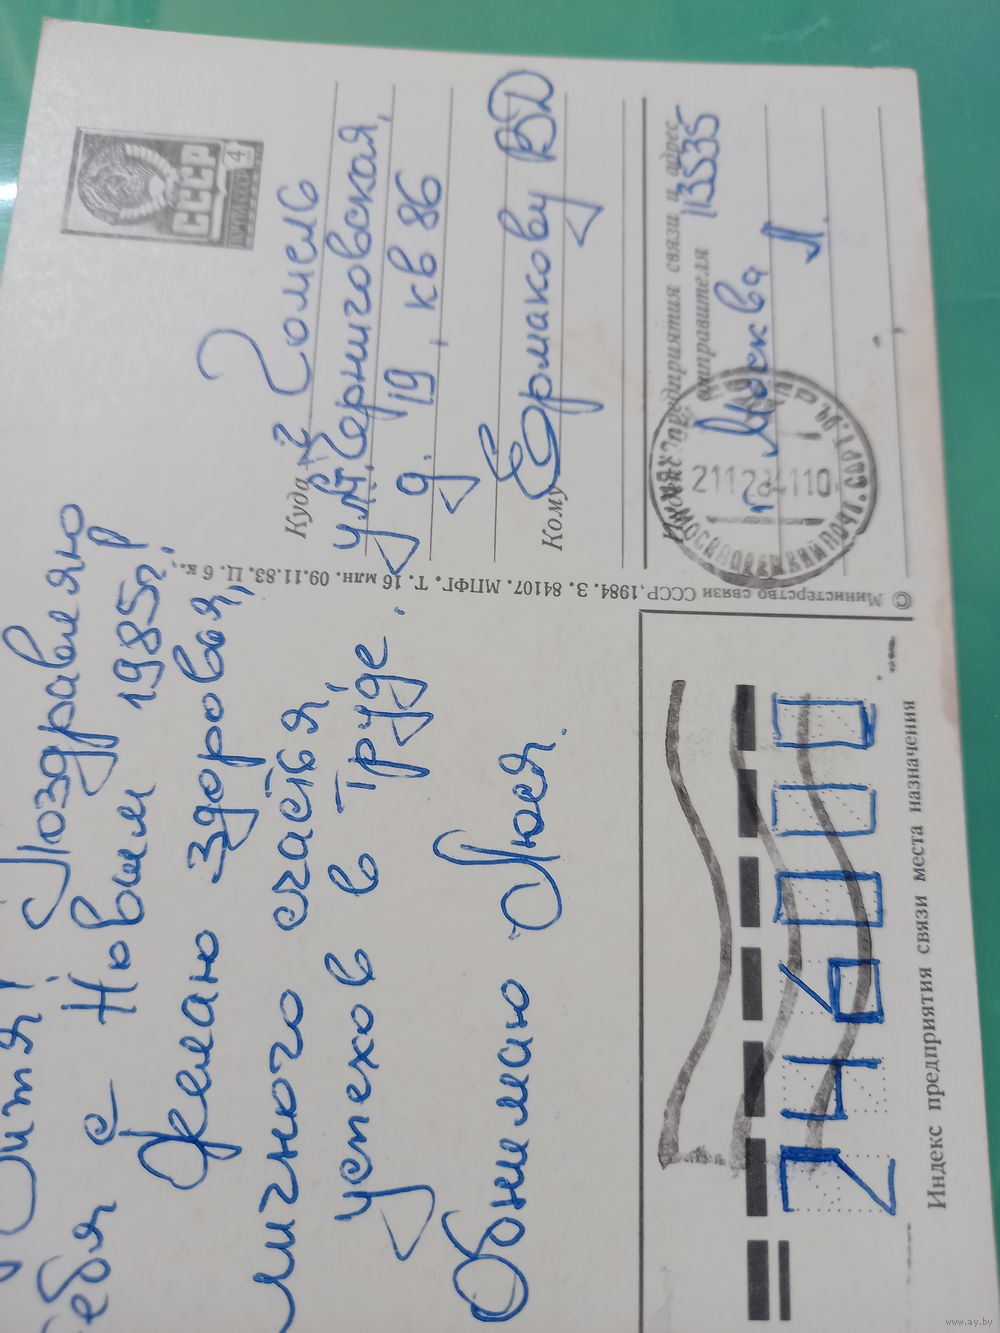 Витя! Поздравляю
тебя с Новым 1985г!
Желаю здоровья,
личного счастья
успехов в труде.
Обнимаю Люся.
© Министерство связи СССР, 1984. З. 84107. МПФГ. Т. 16 млн. 09.11.83. Ц. 6 к.
СССР
4
Куда г. Гомель
ул. Черниговская,
д. 19, кв 86
Кому Ермакову ВД
Индекс предприятия связи и адрес
отправителя 113535
г. Москва
Л.
211284110
246000
Индекс предприятия связи места назначения
www.ay.by